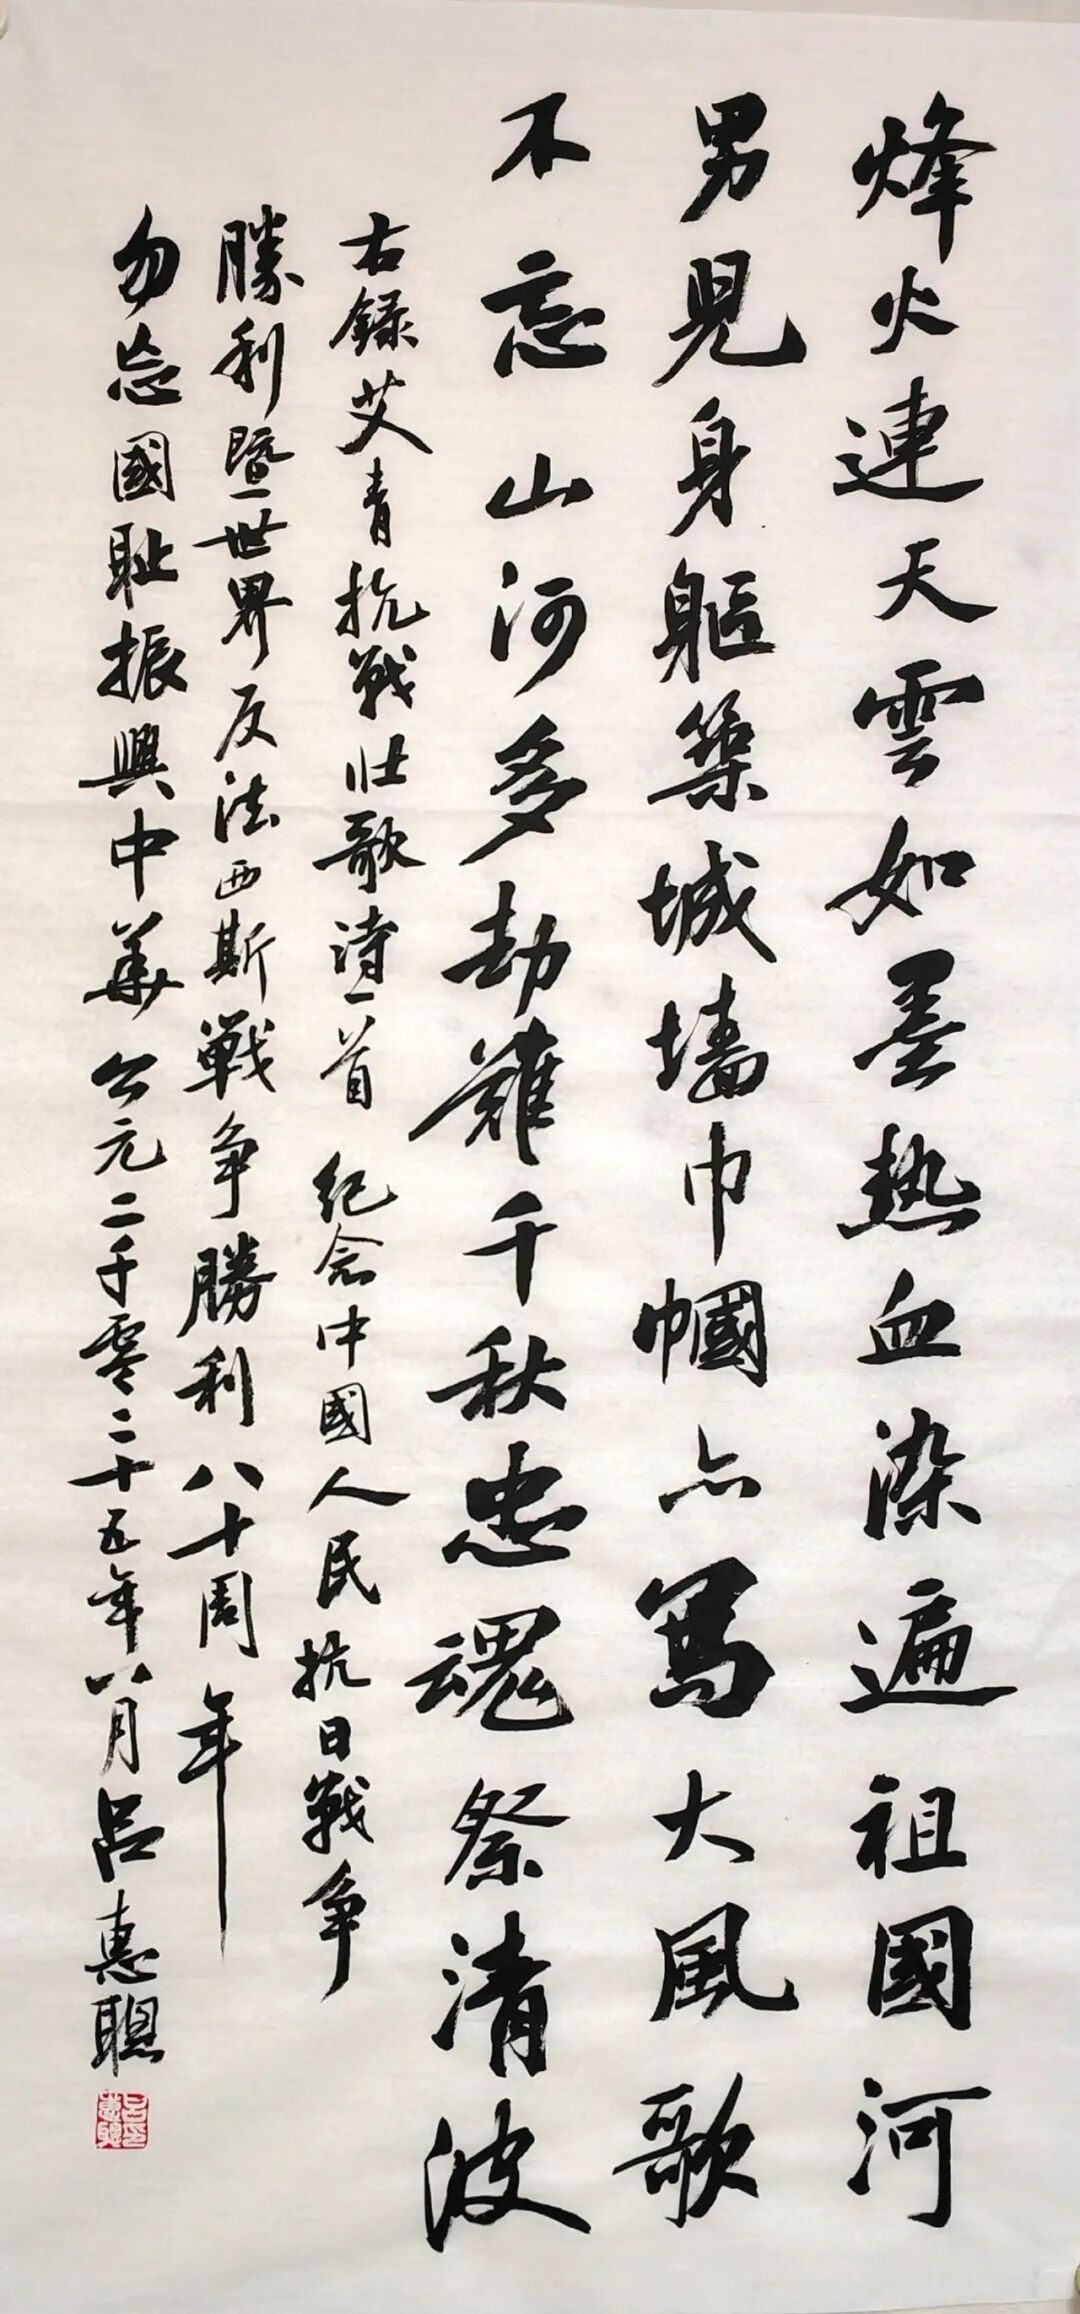 烽火連天雲如墨熱血染遍祖國河
男兒身軀築城墻巾幗亦寫大風歌
不忘山河多劫難千秋忠魂祭清波
右錄艾青抗戰壯歌诗一首 纪念中國人民抗日戰争
勝利暨世界反法西斯戰争勝利八十周年
勿忘國耻振興中華 公元二千零二十五年八月吕惠聰